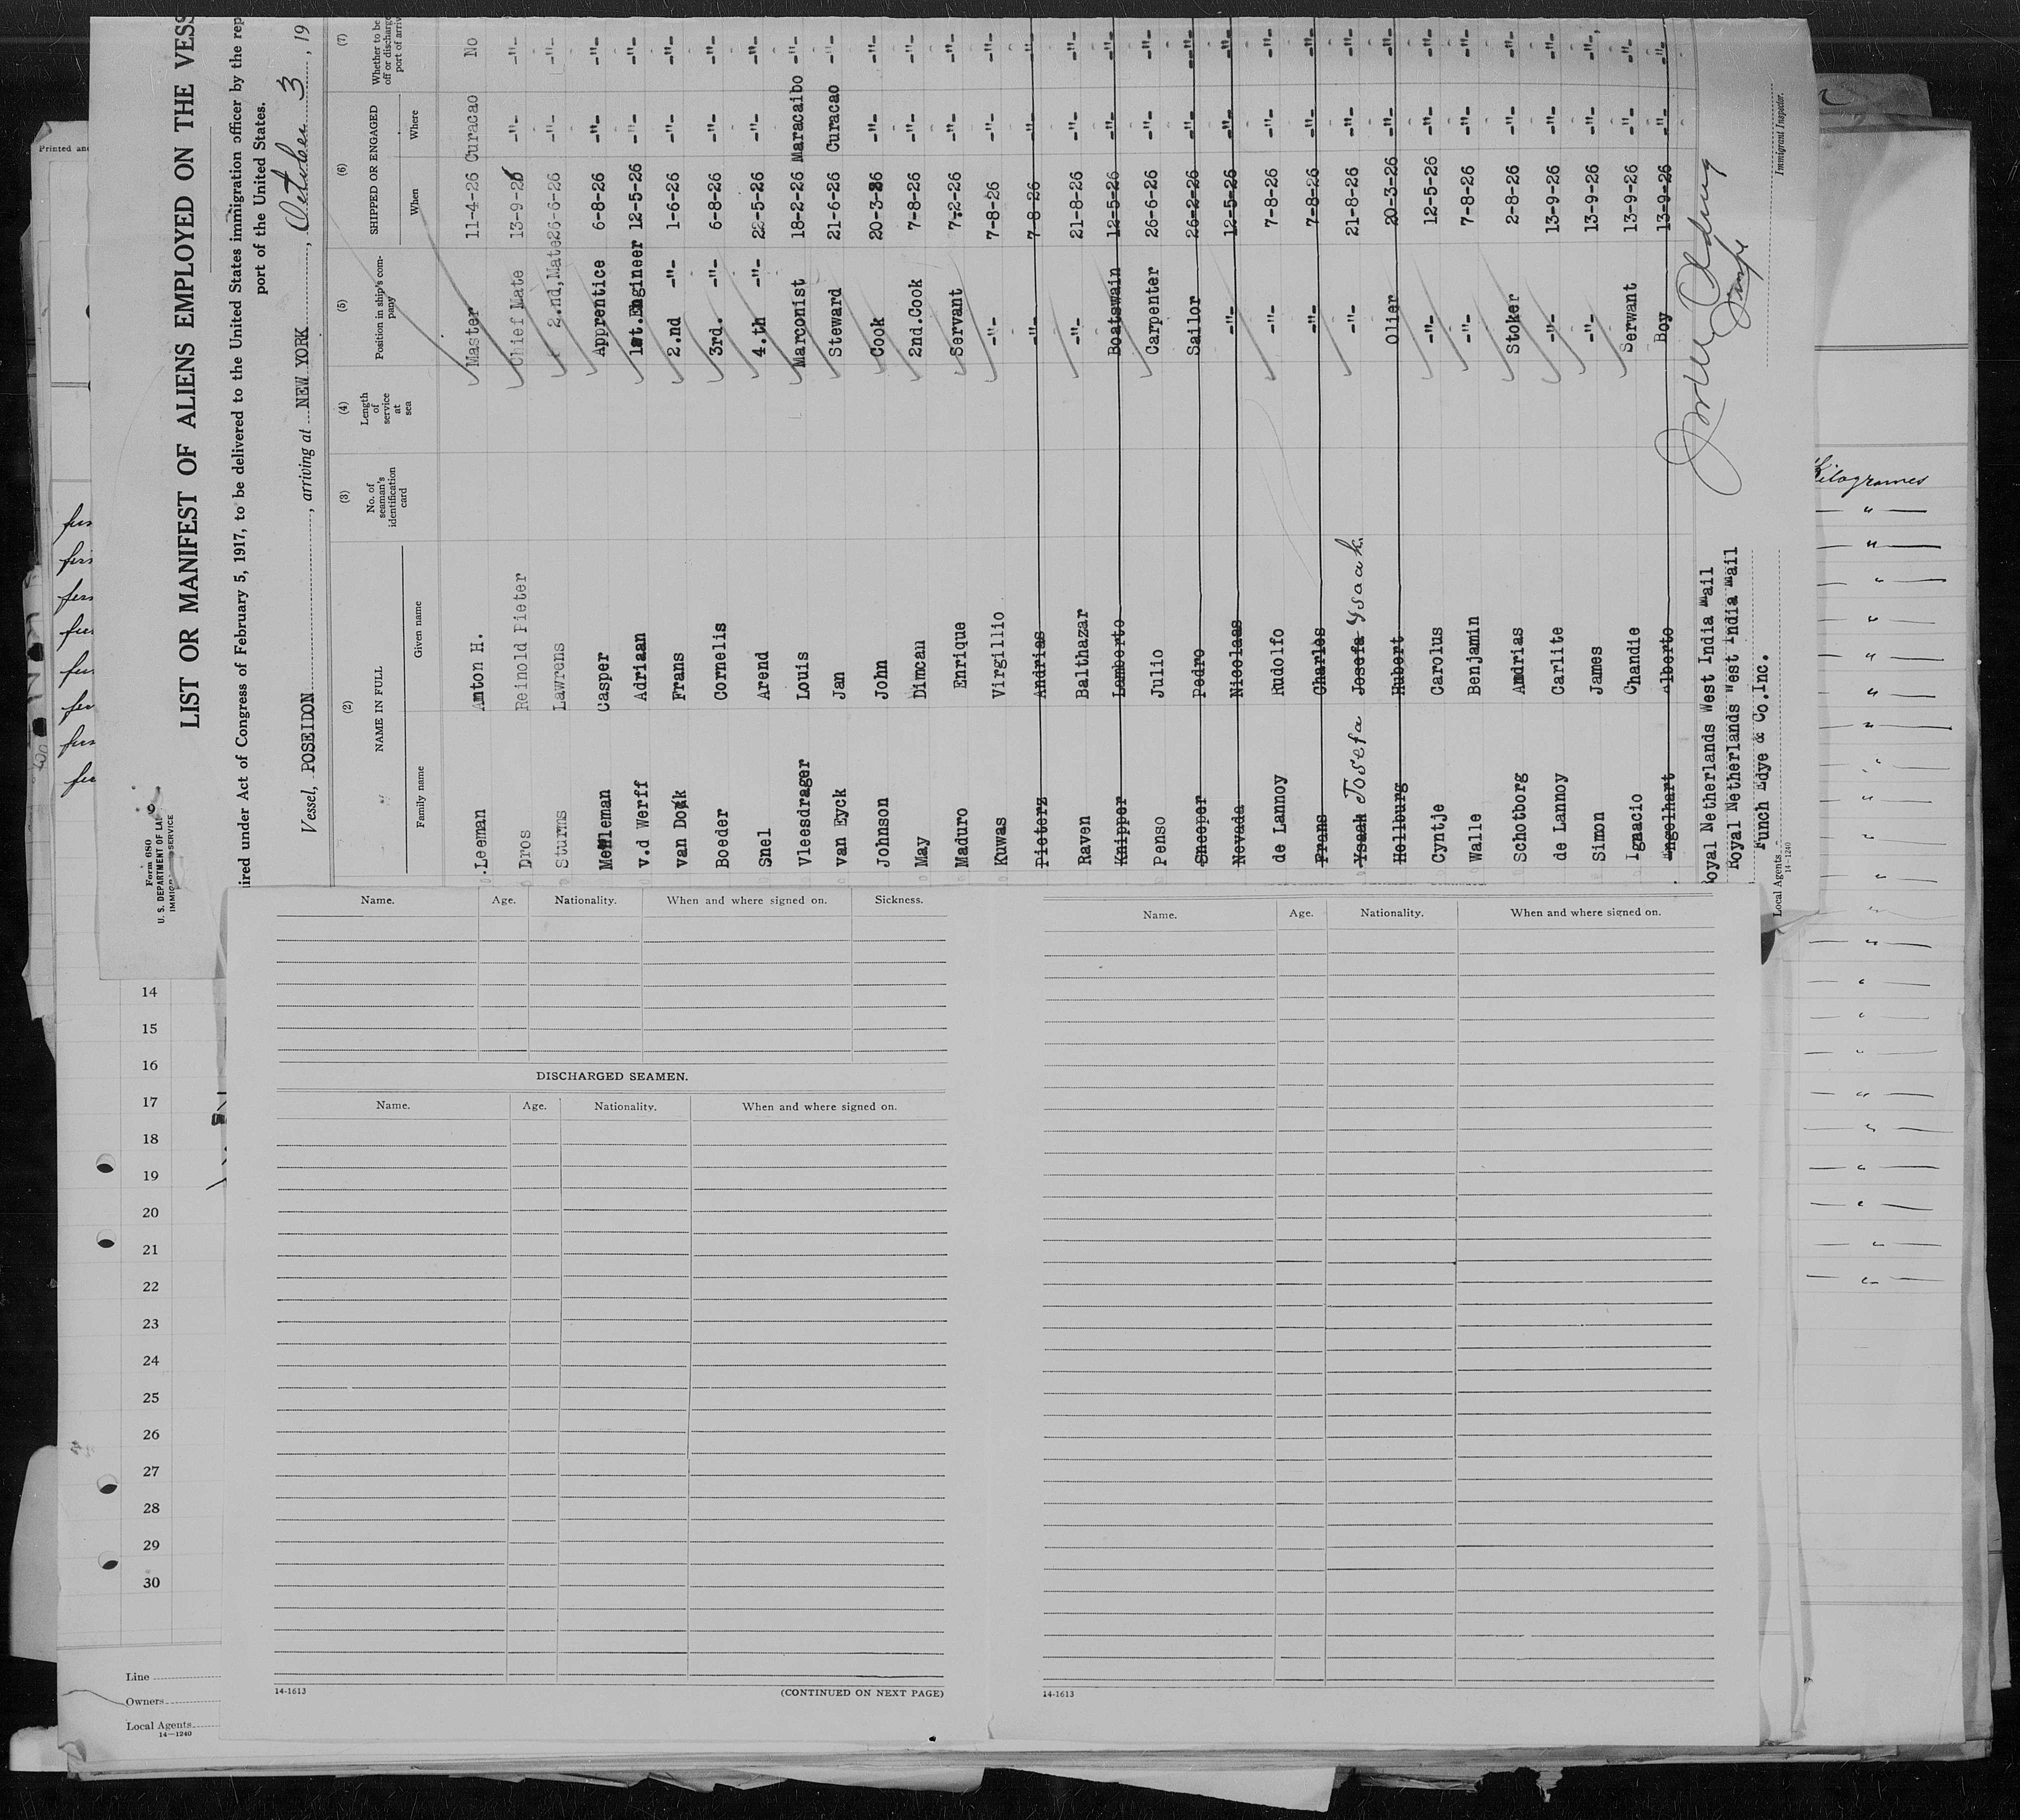 Form 680
U. S. DEPARTMENT OF LA
IMMIGR SERVICE
LIST OR MANIFEST OF ALIENS EMPLOYED ON THE VESS
ired under Act of Congress of February 5, 1917, to be delivered to the United States immigration officer by the rep
port of the United States.
Vessel, POSEIDON, arriving at NEW YORK, October 3, 19
(2) (3) (4) (5) (6) (7)
NAME IN FULL No. of seaman's identification card Length of service at sea Position in ship's company SHIPPED OR ENGAGED Whether to be off or discharge port of arriv
Family name Given name When Where
Leeman Anton H. Master 11-4-26 Curacao No
Dros Reinold Pieter Chief Mate 13-9-26 -"- -"-
Sturms Lawrens 2.nd,Mate 26-6-26 -"- -"-
Casper Apprentice 6-8-26 -"- -"-
v.d Werff Adriaan 1st.Engineer 12-5-26 -"- -"-
van Dock Frans 2.nd -"- 1-6-26 -"- -"-
Boeder Cornelis 3rd. -"- 6-8-26 -"- -"-
Snel Arend 4.th -"- 22-5-26 -"- -"-
Vleesdrager Louis Marconist 18-2-26 Maracaibo -"-
van Eyck Jan Steward 21-6-26 Curacao -"-
Johnson John Cook 20-3-26 -"- -"-
May Dimcan 2nd.Cook 7-8-26 -"- -"-
Maduro Enrique Servant 7.2-26 -"- -"-
Kuwas Virgillio -"- 7-8-26 -"- -"-
Pieterz Andrias -"- 7-8-26 -"- -"-
Raven Balthazar -"- 21-8-26 -"- -"-
Knipper Lamberto Boatswain 12-5-26 -"- -"-
Penso Julio Carpenter 26-6-26 -"- -"-
Sneeper Pedro Sailor 26-2-26 -"- -"-
Nevada Nicolaas -"- 12-5-26 -"- -"-
de Lannoy Rudolfo -"- 7-8-26 -"- -"-
Frans Charles -"- 7-8-26 -"- -"-
Ysaak Josefa Josefa Ysaak -"- 21-8-26 -"- -"-
Hellburg Hubert Olier 20-3-26 -"- -"-
Cyntje Carolus -"- 12-5-26 -"- -"-
Walle Benjamin -"- 7-8-26 -"- -"-
Schotborg Andrias Stoker 2-8-26 -"- -"-
de Lannoy Carlite -"- 13-9-26 -"- -"-
Simon James -"- 13-9-26 -"- -"-
Ignacio Chandie Serwant 13-9-26 -"- -"-
Engelhart Alberto Boy 13-9-26 -"- -"-
Royal Netherlands West India Mail
Royal Netherlands West India Mail
Funch Edye & Co.Inc.
Local Agents
14-1240
Immigrant Inspector.
Printed and
Kilogrames
14
15
16
17
18
19
20
21
22
23
24
25
26
27
28
29
30
Line
Owners
Local Agents
14-1240
Name. Age. Nationality. When and where signed on. Sickness.
DISCHARGED SEAMEN.
Name. Age. Nationality. When and where signed on.
14-1613 (CONTINUED ON NEXT PAGE)
Name. Age. Nationality. When and where signed on.
14-1613